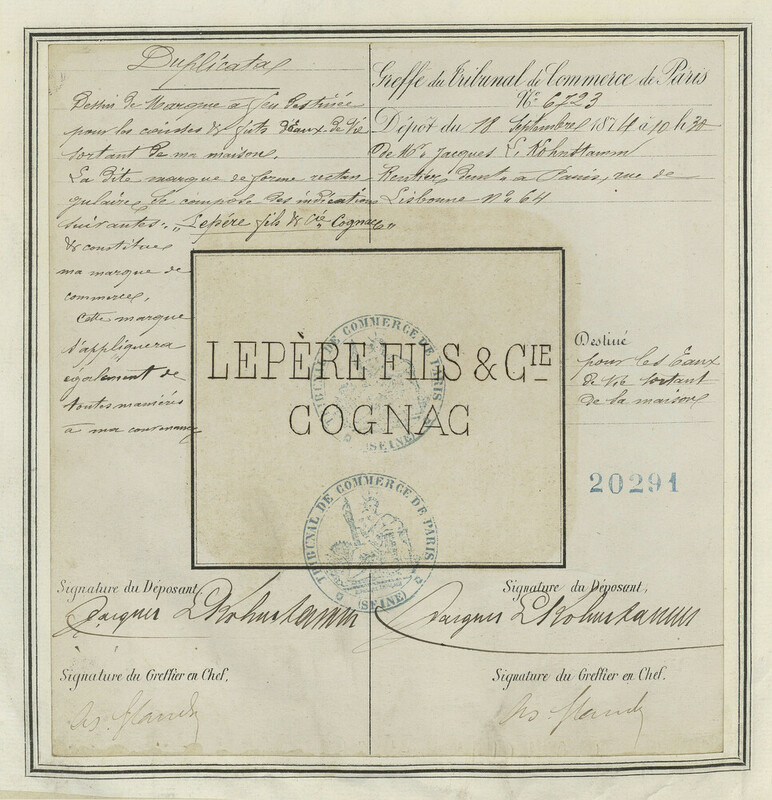 Duplicata
Dessin de Marque a feu destinée
pour les caisses & fûts d'Eaux-de-Vie
sortant de ma maison.
La dite marque de forme rectan
gulaire se compose des indications
suivantes: „Lepère fils & Cie Cognac"
& constitue
ma marque de
commerce.
Cette marque
s'appliquera
également de
toutes manières
à ma convenance
Greffe du Tribunal de Commerce de Paris
No 6723
Dépôt du 18 Septembre 1874 à 10 h 30
de Mr. Jacques L. Kohnstamm
Rentier, demt. à Paris, rue de
Lisbonne no 64
LEPÈRE FILS & CIE
COGNAC
TRIBUNAL DE COMMERCE DE PARIS
(SEINE)
TRIBUNAL DE COMMERCE DE PARIS
(SEINE)
Destiné
pour les Eaux
de Vie sortant
de la maison
20291
Signature du Déposant,
Jacques L Kohnstamm
Signature du Greffier en Chef,
Signature du Déposant,
Jacques L Kohnstamm
Signature du Greffier en Chef.